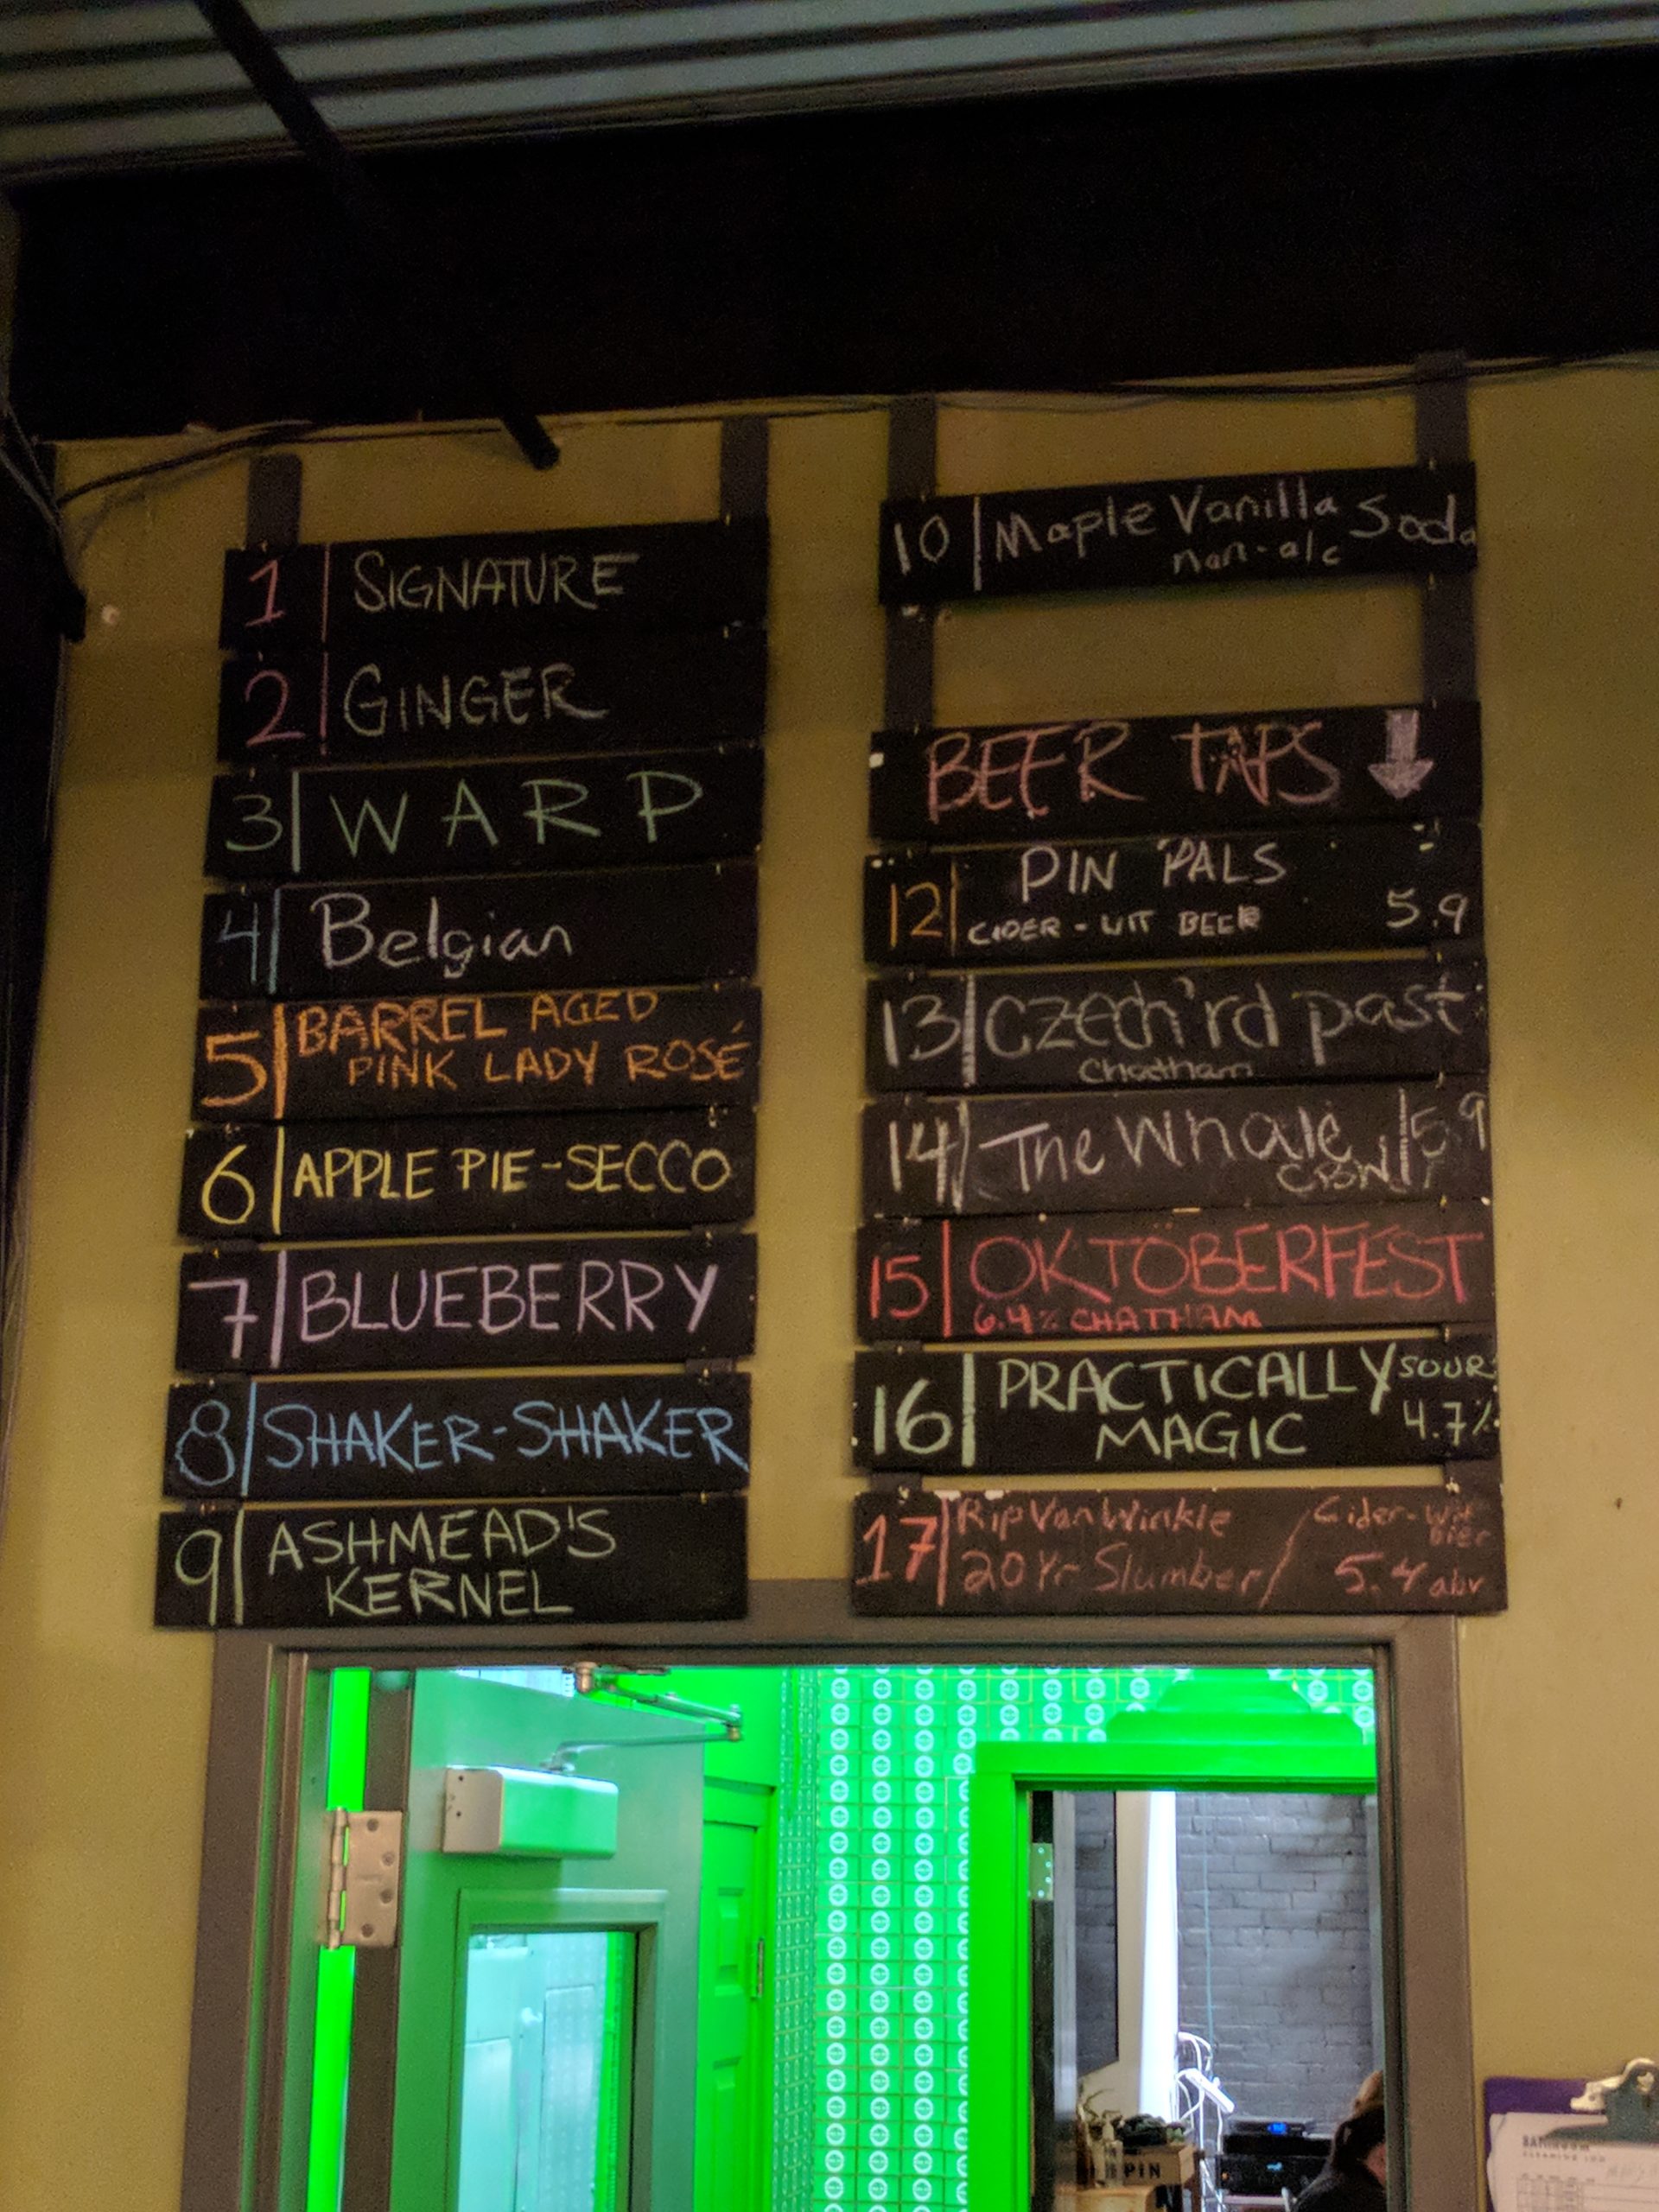 1 SIGNATURE
2 GINGER
3 WARP
4 Belgian
5 BARREL AGED
PINK LADY ROSÉ
6 APPLE PIE-SECCO
7 BLUEBERRY
8 SHAKER-SHAKER
9 ASHMEAD'S
KERNEL
10 Maple Vanilla Soda
non-alc
BEER TAPS
12 PIN PALS
CIDER - WIT BEER 5.9
13 Czech'rd past
Chatham
14 The Whale 5.9
CBW
15 OKTÖBERFEST
6.4% CHATHAM
16 PRACTICALLY SOUR
MAGIC 4.7%
17 Rip Van Winkle Cider-Wit
bier
20 Yr Slumber / 5.4 abv
PIN
BATHROOM
CLEANING LOG